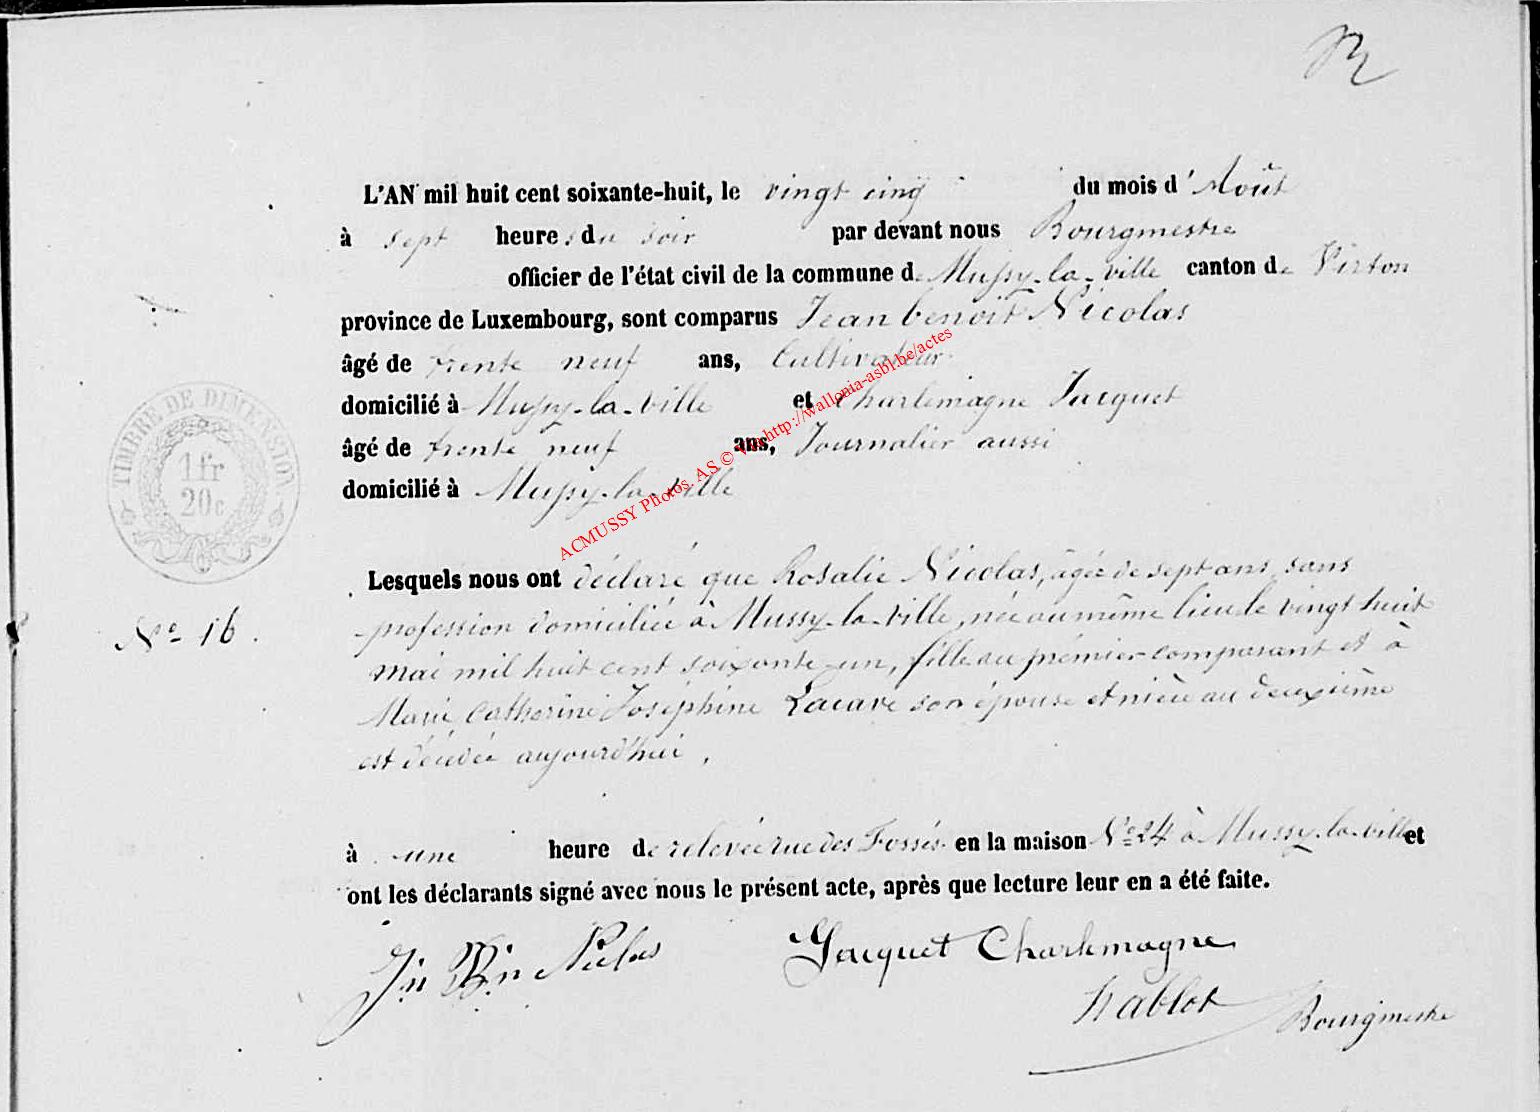 L'AN mil huit cent soixante-huit, le vingt cinq du mois d'Août
à sept heures du soir par devant nous Bourgmestre
officier de l'état civil de la commune de Mussy-la-ville canton de Virton
province de Luxembourg, sont comparus Jean benoit Nicolas
âgé de trente neuf ans, Cultivateur
domicilié à Mussy-la-ville et Charlemagne Jacquet
âgé de trente neuf ans, Journalier aussi
domicilié à Mussy-la-ville
ACMUSSY Photos. AS © Via http://wallonia-asbl.be/actes
TIMBRE DE DIMENSION
1fr
20c
Lesquels nous ont déclaré que Rosalie Nicolas, âgée de sept ans, sans
N° 16.
profession domiciliée à Mussy-la-ville, née au même lieu le vingt huit
mai mil huit cent soixante-un, fille au prémier comparant et à
Marie Catherine Joséphine Lacave son épouse et nièce au deuxième
est décédée aujourd'hui,
à une heure de relevée rue des Fossés en la maison N° 24 à Mussy-la-ville et
ont les déclarants signé avec nous le présent acte, après que lecture leur en a été faite.
Jn Bn Nicolas Jacquet Charlemagne
Hablot Bourgmestre